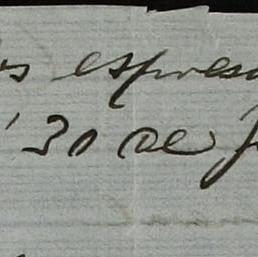 s espres
30 de